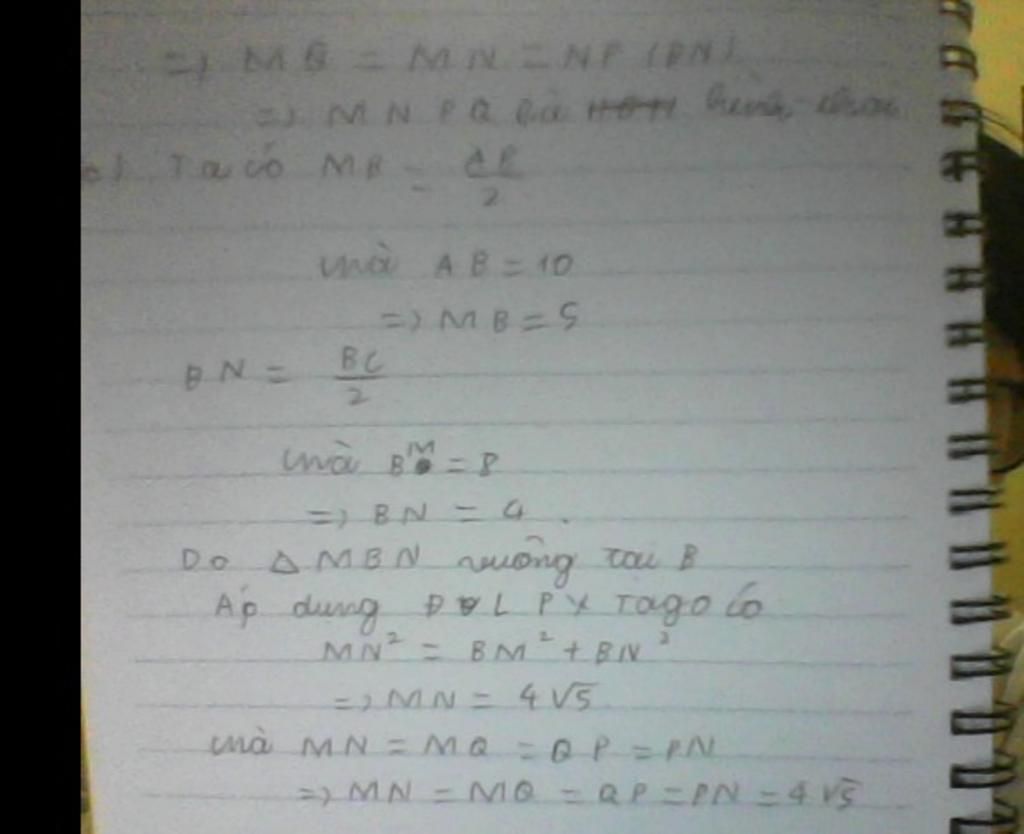 => MQ = MN = NP (PN)
=> MNPQ là hình thoi
c) Ta có MB = AB/2
mà AB = 10
=> MB = 5
BN = BC/2
mà BM = 8
=> BN = 4.
Do Δ MBN vuông tại B
Áp dụng ĐL PYTago có
MN² = BM² + BN²
=> MN = 4√5
mà MN = MQ = QP = PN
=> MN = MQ = QP = PN = 4√5